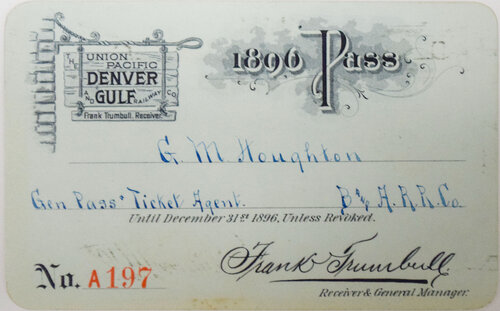 THE
UNION
PACIFIC
DENVER
AND GULF RAILWAY CO.
Frank Trumbull, Receiver.
1896 Pass
G. M. Houghton
Gen Pass & Ticket Agent. B & A. R. R. Co.
Until December 31st 1896, Unless Revoked.
No. A197
Frank Trumbull.
Receiver & General Manager.